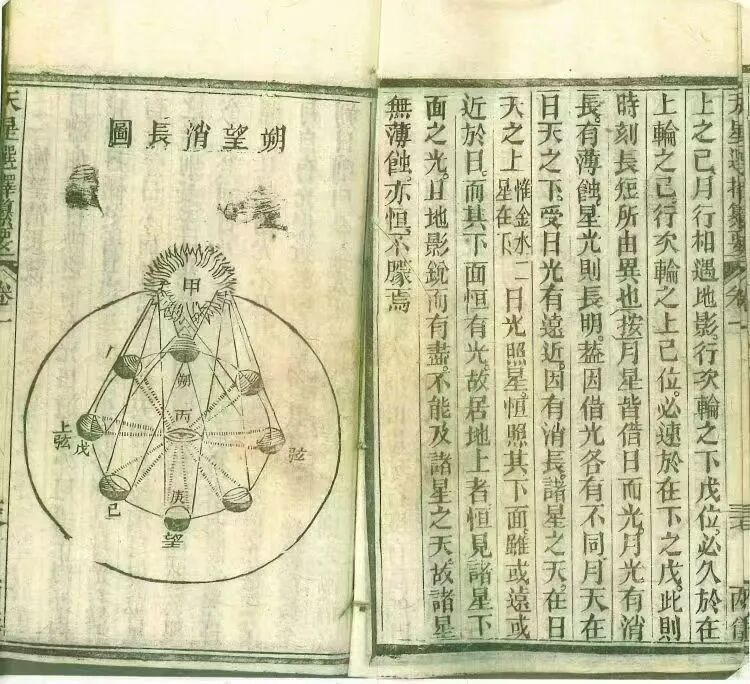 天星選擇纂要 卷一
上之已。月行相遇地影。行次輪之下戊位。必久於在
上輪之已。行次輪之上已位。必速於在下之戊。此則
時刻長短所由異也。按月星皆借日而光。月光有消
長。有薄蝕。星光則長明。蓋因借光各有不同。月天在
日天之下。受日光有遠近。因有消長。諸星之天。在日
天之上惟金水二星在下日光照星。恒照其下面。雖或遠或
近於日。而其下面恒有光。故居地上者。恒見諸星下
面之光。且地影銳而有盡。不能及諸星之天。故諸星
無薄蝕。亦恒不朦焉
朔望消長圖
甲
朔
丁
丙
上弦
戊
弦
己
庚
望
天星選擇纂要 卷一